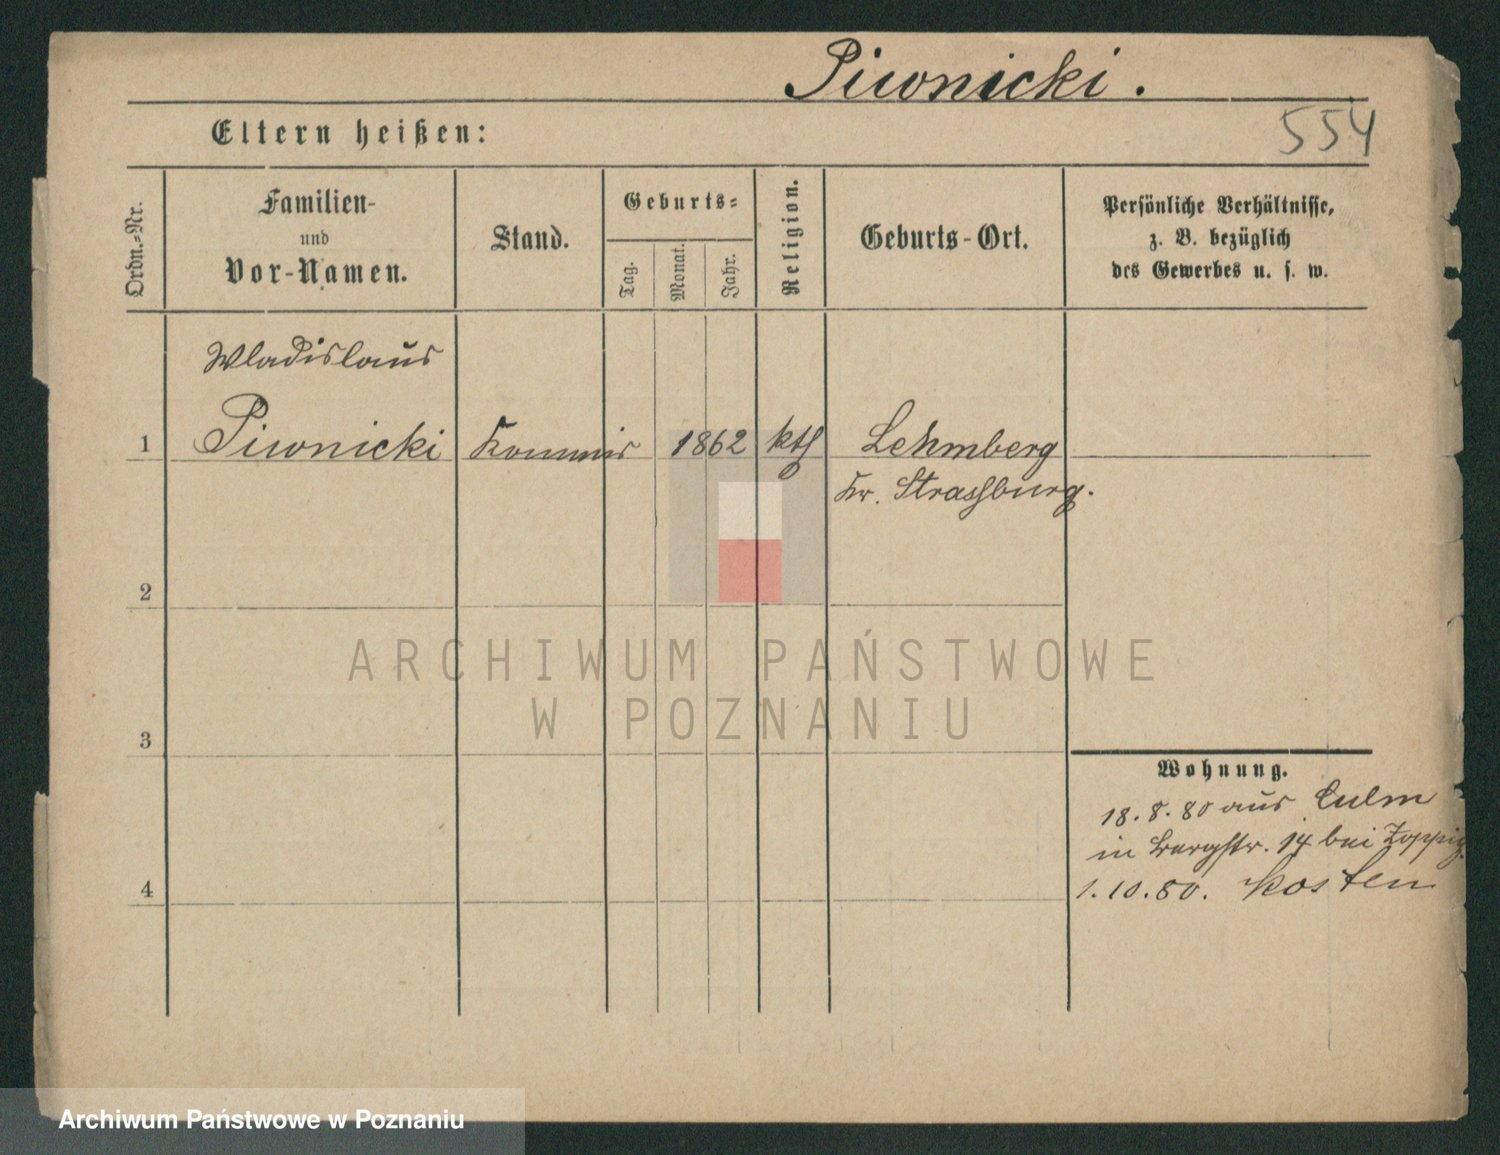 Piwnicki.
Eltern heißen:
554
Ordn.-Nr.
Familien-
und
Vor-Namen.
Stand.
Geburts-
Tag.
Monat.
Jahr.
Religion.
Geburts-Ort.
Persönliche Verhältnisse,
z. B. bezüglich
des Gewerbes u. s. w.
Wladislaus
1 Piwnicki Kommis 1862 kth Lehmberg
Kr. Strassburg.
2
ARCHIWUM PAŃSTWOWE
W POZNANIU
3
Wohnung.
18.8.80 aus Culm
in Bergstr. 14 bei
4
1.10.80. Kosten
Archiwum Państwowe w Poznaniu